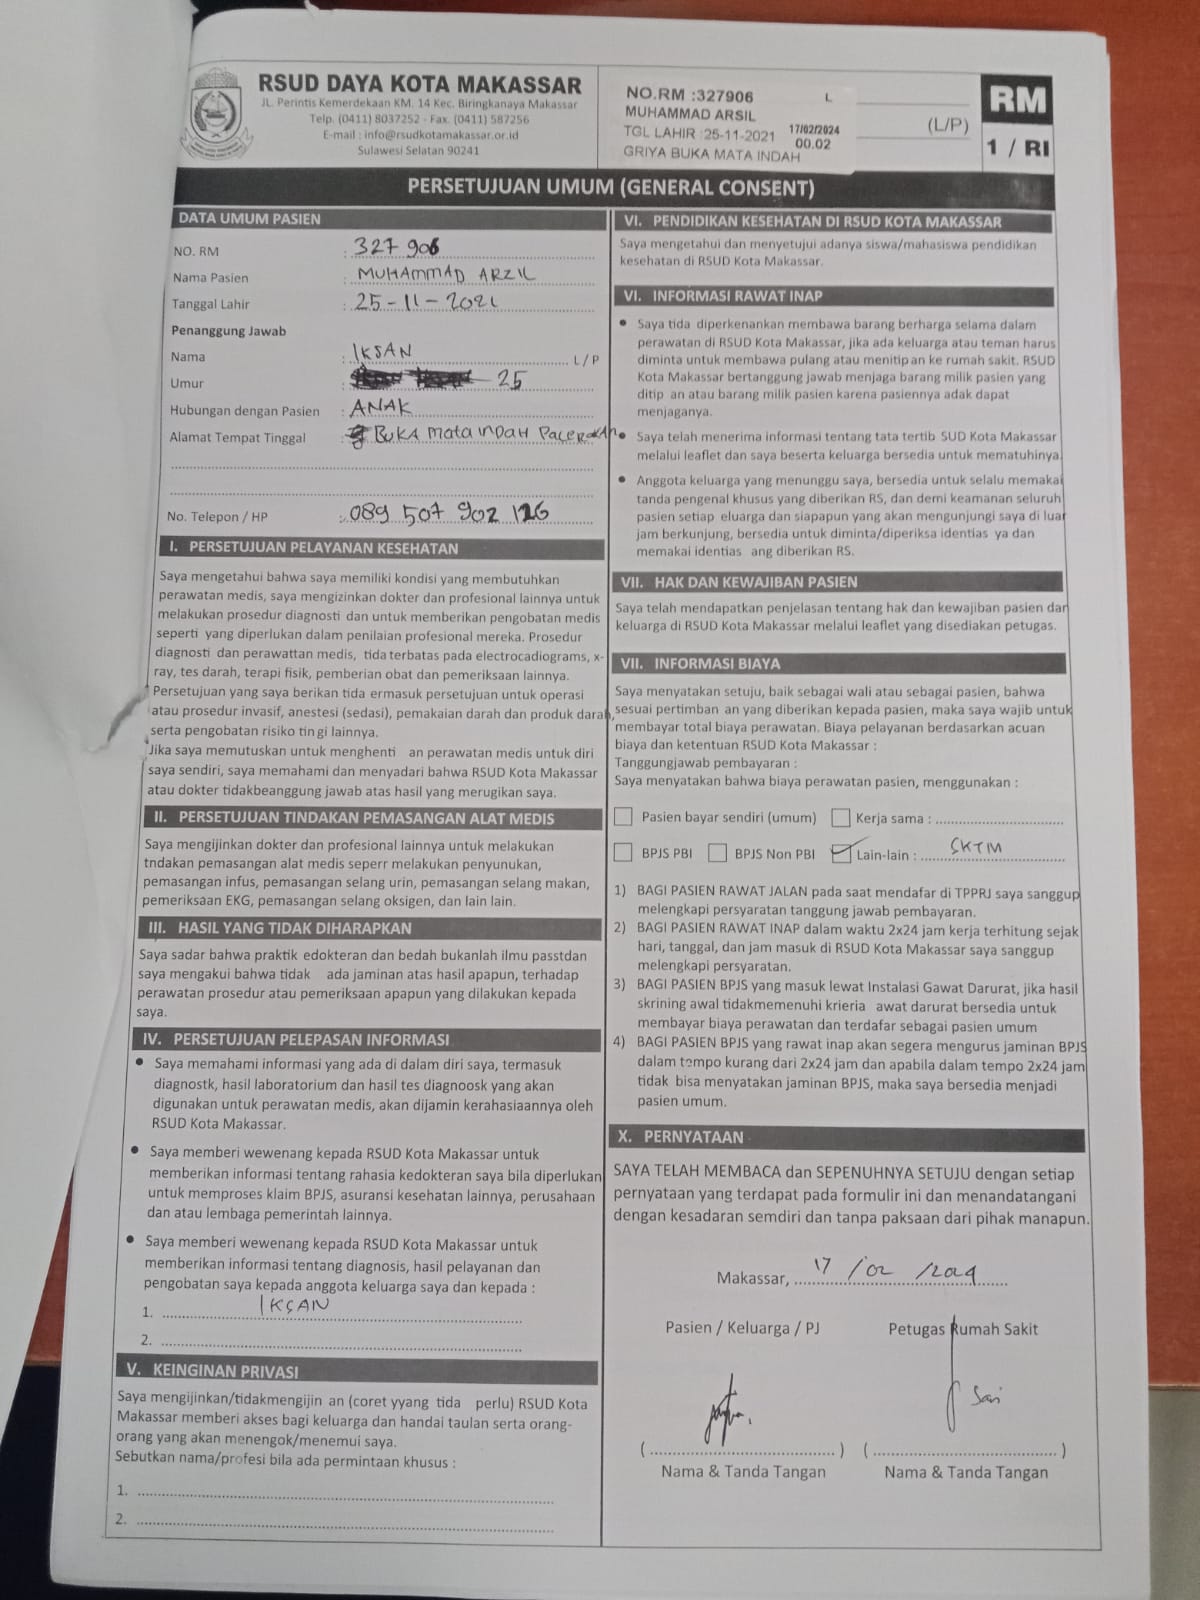 RSUD DAYA KOTA MAKASSAR
JL. Perintis Kemerdekaan KM. 14 Kec. Biringkanaya Makassar
Telp. (0411) 8037252 - Fax. (0411) 587256
E-mail : info@rsudkotamakassar.or.id
Sulawesi Selatan 90241
NO.RM :327906 L
MUHAMMAD ARSIL
TGL LAHIR :25-11-2021 17/02/2024
00.02
GRIYA BUKA MATA INDAH
(L/P)
RM
1 / RI
PERSETUJUAN UMUM (GENERAL CONSENT)
DATA UMUM PASIEN
NO. RM : 327 906
Nama Pasien : MUHAMMAD ARZIL
Tanggal Lahir : 25-11-2021
Penanggung Jawab
Nama : IKSAN L / P
Umur : 25
Hubungan dengan Pasien : ANAK
Alamat Tempat Tinggal : BUKA Mata INDAH
No. Telepon / HP : 089 507 902 126
I. PERSETUJUAN PELAYANAN KESEHATAN
Saya mengetahui bahwa saya memiliki kondisi yang membutuhkan
perawatan medis, saya mengizinkan dokter dan profesional lainnya untuk
melakukan prosedur diagnosti dan untuk memberikan pengobatan medis
seperti yang diperlukan dalam penilaian profesional mereka. Prosedur
diagnosti dan perawattan medis, tida terbatas pada electrocadiograms, x-
ray, tes darah, terapi fisik, pemberian obat dan pemeriksaan lainnya.
Persetujuan yang saya berikan tida ermasuk persetujuan untuk operasi
atau prosedur invasif, anestesi (sedasi), pemakaian darah dan produk darah,
serta pengobatan risiko tin gi lainnya.
Jika saya memutuskan untuk menghenti an perawatan medis untuk diri
saya sendiri, saya memahami dan menyadari bahwa RSUD Kota Makassar
atau dokter tidakbeanggung jawab atas hasil yang merugikan saya.
II. PERSETUJUAN TINDAKAN PEMASANGAN ALAT MEDIS
Saya mengijinkan dokter dan profesional lainnya untuk melakukan
tndakan pemasangan alat medis seperr melakukan penyunukan,
pemasangan infus, pemasangan selang urin, pemasangan selang makan,
pemeriksaan EKG, pemasangan selang oksigen, dan lain lain.
III. HASIL YANG TIDAK DIHARAPKAN
Saya sadar bahwa praktik edokteran dan bedah bukanlah ilmu passtdan
saya mengakui bahwa tidak ada jaminan atas hasil apapun, terhadap
perawatan prosedur atau pemeriksaan apapun yang dilakukan kepada
saya.
IV. PERSETUJUAN PELEPASAN INFORMASI
• Saya memahami informasi yang ada di dalam diri saya, termasuk
diagnostk, hasil laboratorium dan hasil tes diagnoosk yang akan
digunakan untuk perawatan medis, akan dijamin kerahasiaannya oleh
RSUD Kota Makassar.
• Saya memberi wewenang kepada RSUD Kota Makassar untuk
memberikan informasi tentang rahasia kedokteran saya bila diperlukan
untuk memproses klaim BPJS, asuransi kesehatan lainnya, perusahaan
dan atau lembaga pemerintah lainnya.
• Saya memberi wewenang kepada RSUD Kota Makassar untuk
memberikan informasi tentang diagnosis, hasil pelayanan dan
pengobatan saya kepada anggota keluarga saya dan kepada :
1. IKSAN
2.
V. KEINGINAN PRIVASI
Saya mengijinkan/tidakmengijin an (coret yyang tida perlu) RSUD Kota
Makassar memberi akses bagi keluarga dan handai taulan serta orang-
orang yang akan menengok/menemui saya.
Sebutkan nama/profesi bila ada permintaan khusus :
1.
2.
VI. PENDIDIKAN KESEHATAN DI RSUD KOTA MAKASSAR
Saya mengetahui dan menyetujui adanya siswa/mahasiswa pendidikan
kesehatan di RSUD Kota Makassar.
VI. INFORMASI RAWAT INAP
• Saya tida diperkenankan membawa barang berharga selama dalam
perawatan di RSUD Kota Makassar, jika ada keluarga atau teman harus
diminta untuk membawa pulang atau menitip an ke rumah sakit. RSUD
Kota Makassar bertanggung jawab menjaga barang milik pasien yang
ditip an atau barang milik pasien karena pasiennya adak dapat
menjaganya.
• Saya telah menerima informasi tentang tata tertib SUD Kota Makassar
melalui leaflet dan saya beserta keluarga bersedia untuk mematuhinya.
• Anggota keluarga yang menunggu saya, bersedia untuk selalu memakai
tanda pengenal khusus yang diberikan RS, dan demi keamanan seluruh
pasien setiap eluarga dan siapapun yang akan mengunjungi saya di luar
jam berkunjung, bersedia untuk diminta/diperiksa identias ya dan
memakai identias ang diberikan RS.
VII. HAK DAN KEWAJIBAN PASIEN
Saya telah mendapatkan penjelasan tentang hak dan kewajiban pasien dan
keluarga di RSUD Kota Makassar melalui leaflet yang disediakan petugas.
VII. INFORMASI BIAYA
Saya menyatakan setuju, baik sebagai wali atau sebagai pasien, bahwa
sesuai pertimban an yang diberikan kepada pasien, maka saya wajib untuk
membayar total biaya perawatan. Biaya pelayanan berdasarkan acuan
biaya dan ketentuan RSUD Kota Makassar :
Tanggungjawab pembayaran :
Saya menyatakan bahwa biaya perawatan pasien, menggunakan :
Pasien bayar sendiri (umum) Kerja sama :
BPJS PBI BPJS Non PBI Lain-lain : SKTM
1) BAGI PASIEN RAWAT JALAN pada saat mendafar di TPPRJ saya sanggup
melengkapi persyaratan tanggung jawab pembayaran.
2) BAGI PASIEN RAWAT INAP dalam waktu 2x24 jam kerja terhitung sejak
hari, tanggal, dan jam masuk di RSUD Kota Makassar saya sanggup
melengkapi persyaratan.
3) BAGI PASIEN BPJS yang masuk lewat Instalasi Gawat Darurat, jika hasil
skrining awal tidakmemenuhi krieria awat darurat bersedia untuk
membayar biaya perawatan dan terdafar sebagai pasien umum
4) BAGI PASIEN BPJS yang rawat inap akan segera mengurus jaminan BPJS
dalam tempo kurang dari 2x24 jam dan apabila dalam tempo 2x24 jam
tidak bisa menyatakan jaminan BPJS, maka saya bersedia menjadi
pasien umum.
X. PERNYATAAN
SAYA TELAH MEMBACA dan SEPENUHNYA SETUJU dengan setiap
pernyataan yang terdapat pada formulir ini dan menandatangani
dengan kesadaran semdiri dan tanpa paksaan dari pihak manapun.
Makassar, 17 / 02 / 2024
Pasien / Keluarga / PJ Petugas Rumah Sakit
Sari
( ) ( )
Nama & Tanda Tangan Nama & Tanda Tangan